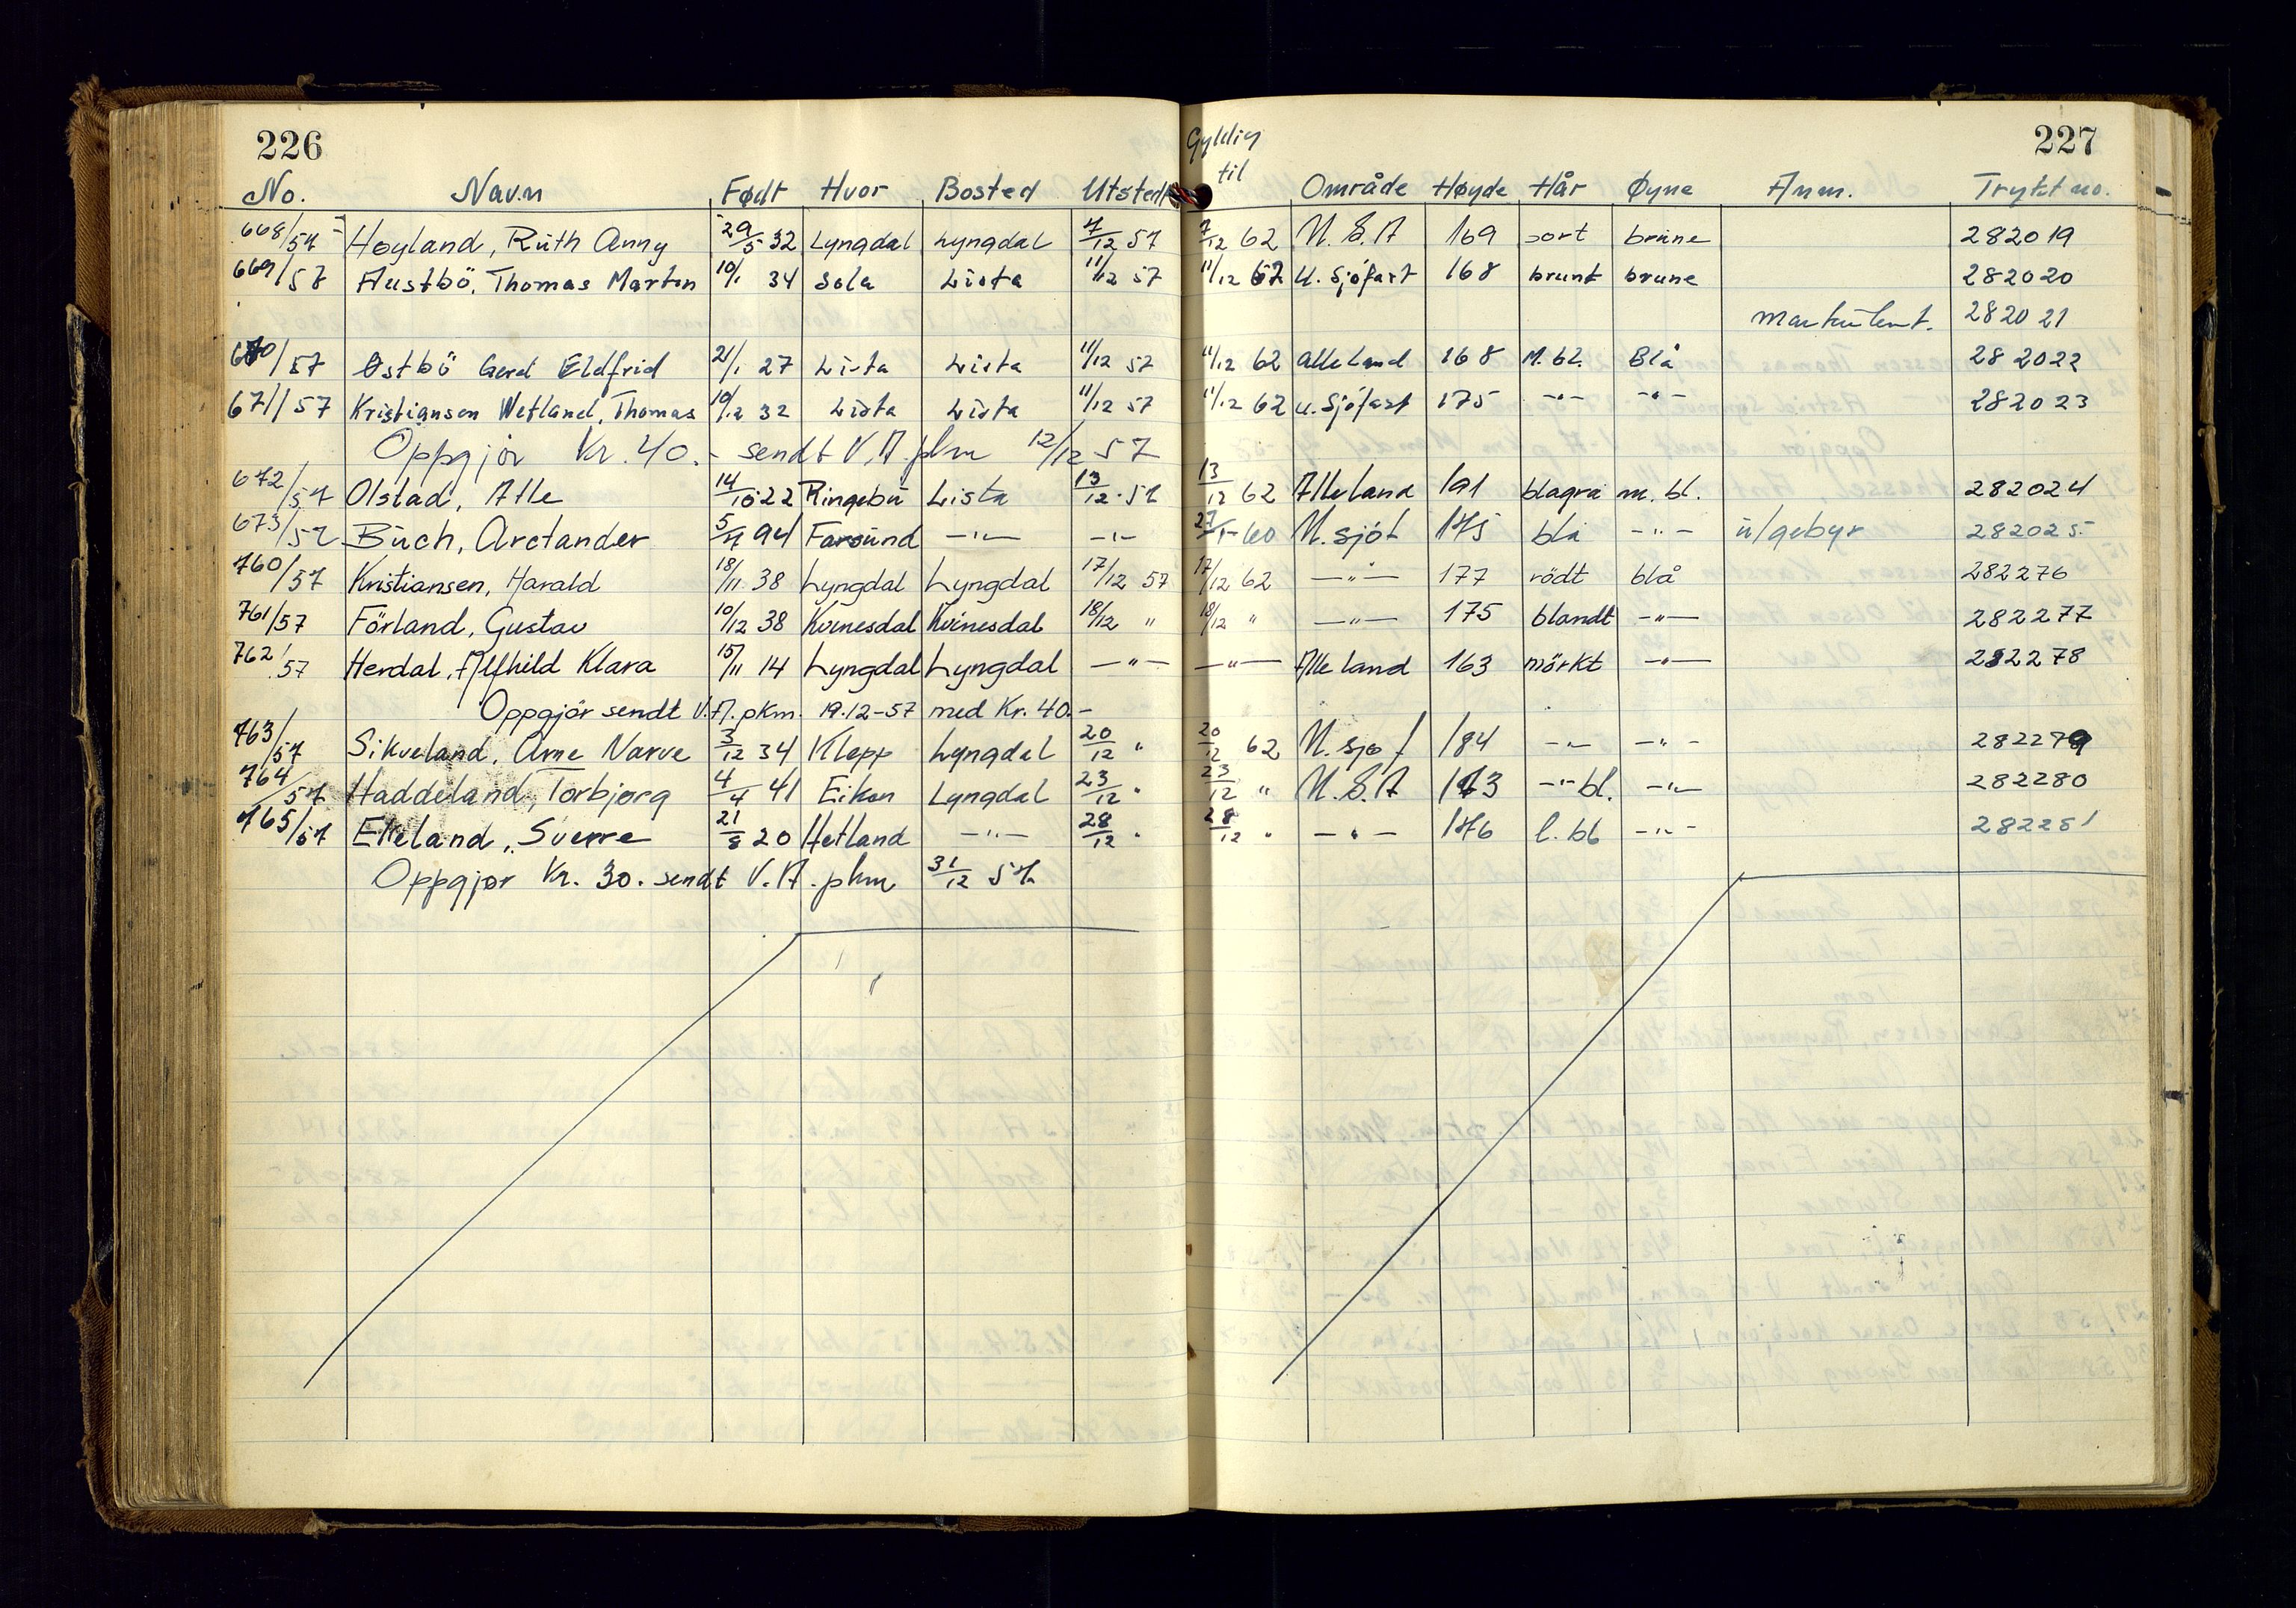 226
Gyldig
til
227
No. Navn Født Hvor Bosted Utsted Område Høyde Hår Øyne Anm. Trykt no.
668/57 Høyland, Ruth Anny 29/5 32 Lyngdal Lyngdal 7/12 57 7/12 62 U.S.A 169 sort brune 282019
669/57 Austbö, Thomas Martin 10/1 34 Sola Lista 11/12 57 11/12 62 U. Sjöfart 168 brunt brune 282020
282021
670/57 Østbö Gerd Eldfrid 21/1 27 Lista Lista 11/12 57 11/12 62 alle land 168 M.bl. Blå 282022
671/57 Kristiansen Wetland, Thomas 10/12 32 Lista Lista 11/12 57 11/12 62 u. Sjöfart 175 -"- -"- 282023
Oppgjør Kr. 40.- sendt V.A. pkm 12/12 57
672/57 Olstad, Atle 14/10 22 Ringebu Lista 13/12 57 13/12 62 Alle land 191 blågrå m. bl. 282024
673/57 Buch, Arctander Farsund -"- -"- U. sjöf 175 blå -"- u/gebyr 282025
760/57 Kristiansen, Harald 18/11 38 Lyngdal Lyngdal 17/12 57 17/12 62 -"- 177 rödt blå 282276
761/57 Förland, Gustav 10/12 38 Kvinesdal Kvinesdal 18/12 " 18/12 " -"- 175 blandt -"- 282277
762/57 Herdal, Alfhild Klara 15/11 14 Lyngdal Lyngdal -"- -"- Alle land 163 mörkt -"- 282278
Oppgjör sendt V.A. pkm. 19.12-57 med Kr. 40.-
763/57 Sikveland, Arne Narve 3/12 34 Klepp Lyngdal 20/12 " 20/12 62 U. sjø f 184 -"- -"- 282279
764/57 Haddeland, Torbjørg 4/4 41 Eiken Lyngdal 23/12 " 23/12 " U.S.A 173 -"- bl. -"- 282280
765/57 Eikeland, Sverre 21/8 20 Hetland -"- 28/12 " 28/12 " -"- 176 l. bl -"- 282281
Oppgjør Kr. 30. sendt V.A. pkm 31/12 57